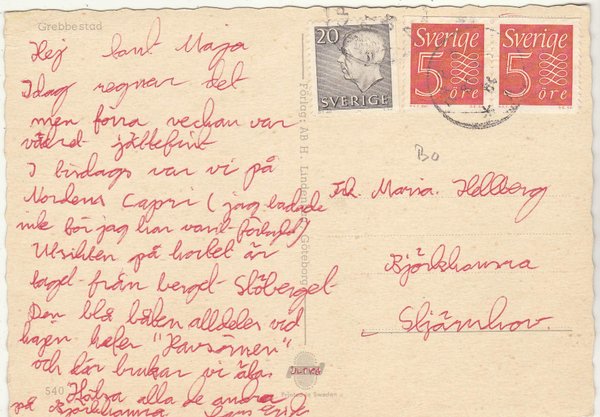 Grebbestad
Hej tant Maja
Idag regnar det
men förra veckan var
vädret jättefint
I tisdags var vi på
Nordens Capri (jag badade
inte för jag har varit förkyld)
Utsikten på kortet är
taget från berget Slöberget
Den blå båten alldeles vid
kajen heter "Havsörnen"
och där brukar vi äta
Hälsa alla de andra
på Björkhamra
540
20
SVERIGE
Sverige
5
öre
Sverige
5
öre
Bo
Frk. Maria. Hellberg
Björkhamra
Stjärnhov.
Förlag: AB H. Lindenhag, Göteborg
ULTRA
Printed in Sweden